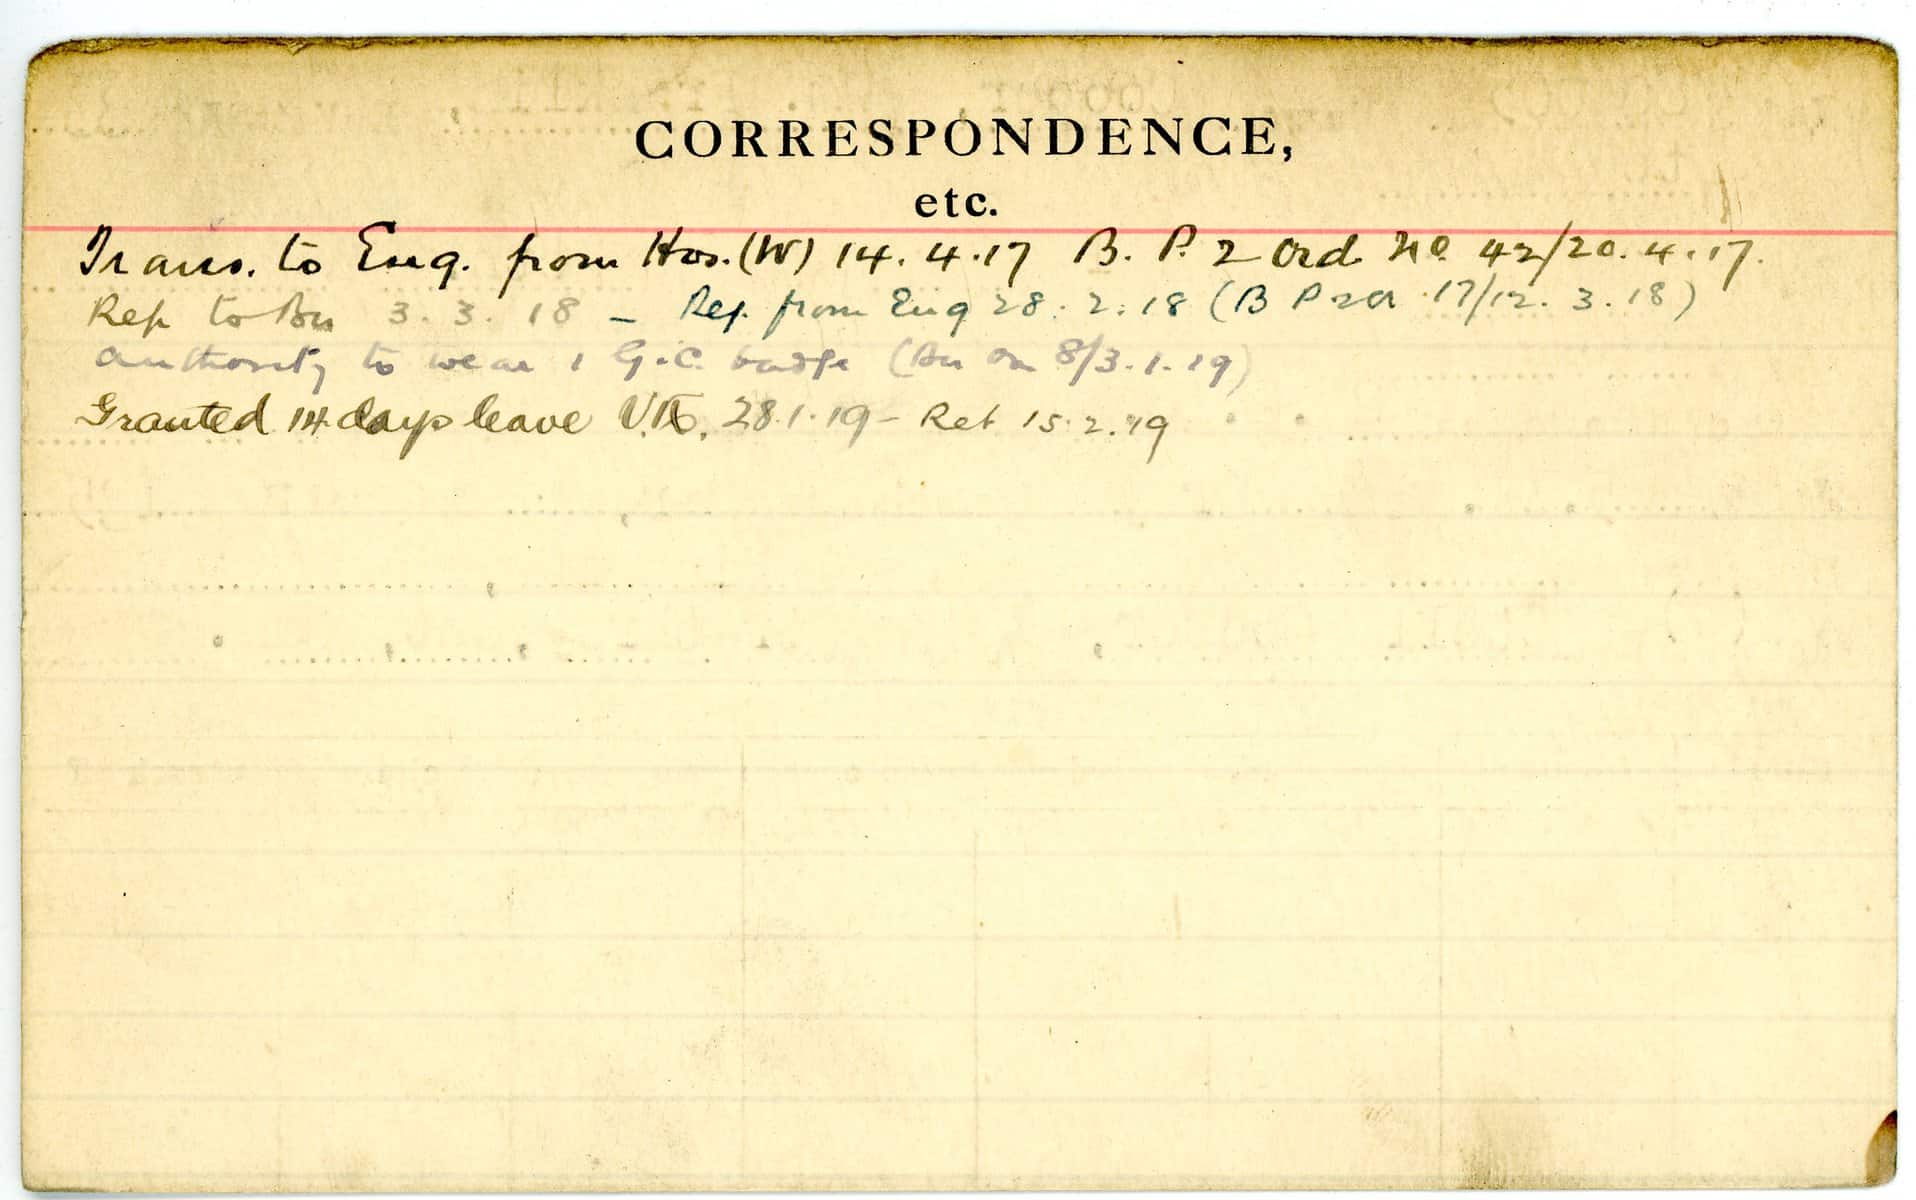 CORRESPONDENCE,
etc.
Trans. to Eng. from Hos. (W) 14. 4. 17 B. P. 2 Ord No 42/20. 4. 17.
Rep to Bn 3. 3. 18 - Rep. from Eng 28. 2. 18 (B P 2 17/12. 3. 18)
Authority to wear 1 G.C. badge (Bn On 8/3. 1. 19)
Granted 14 days leave U.K. 28.1.19 - Ret 15.2.19